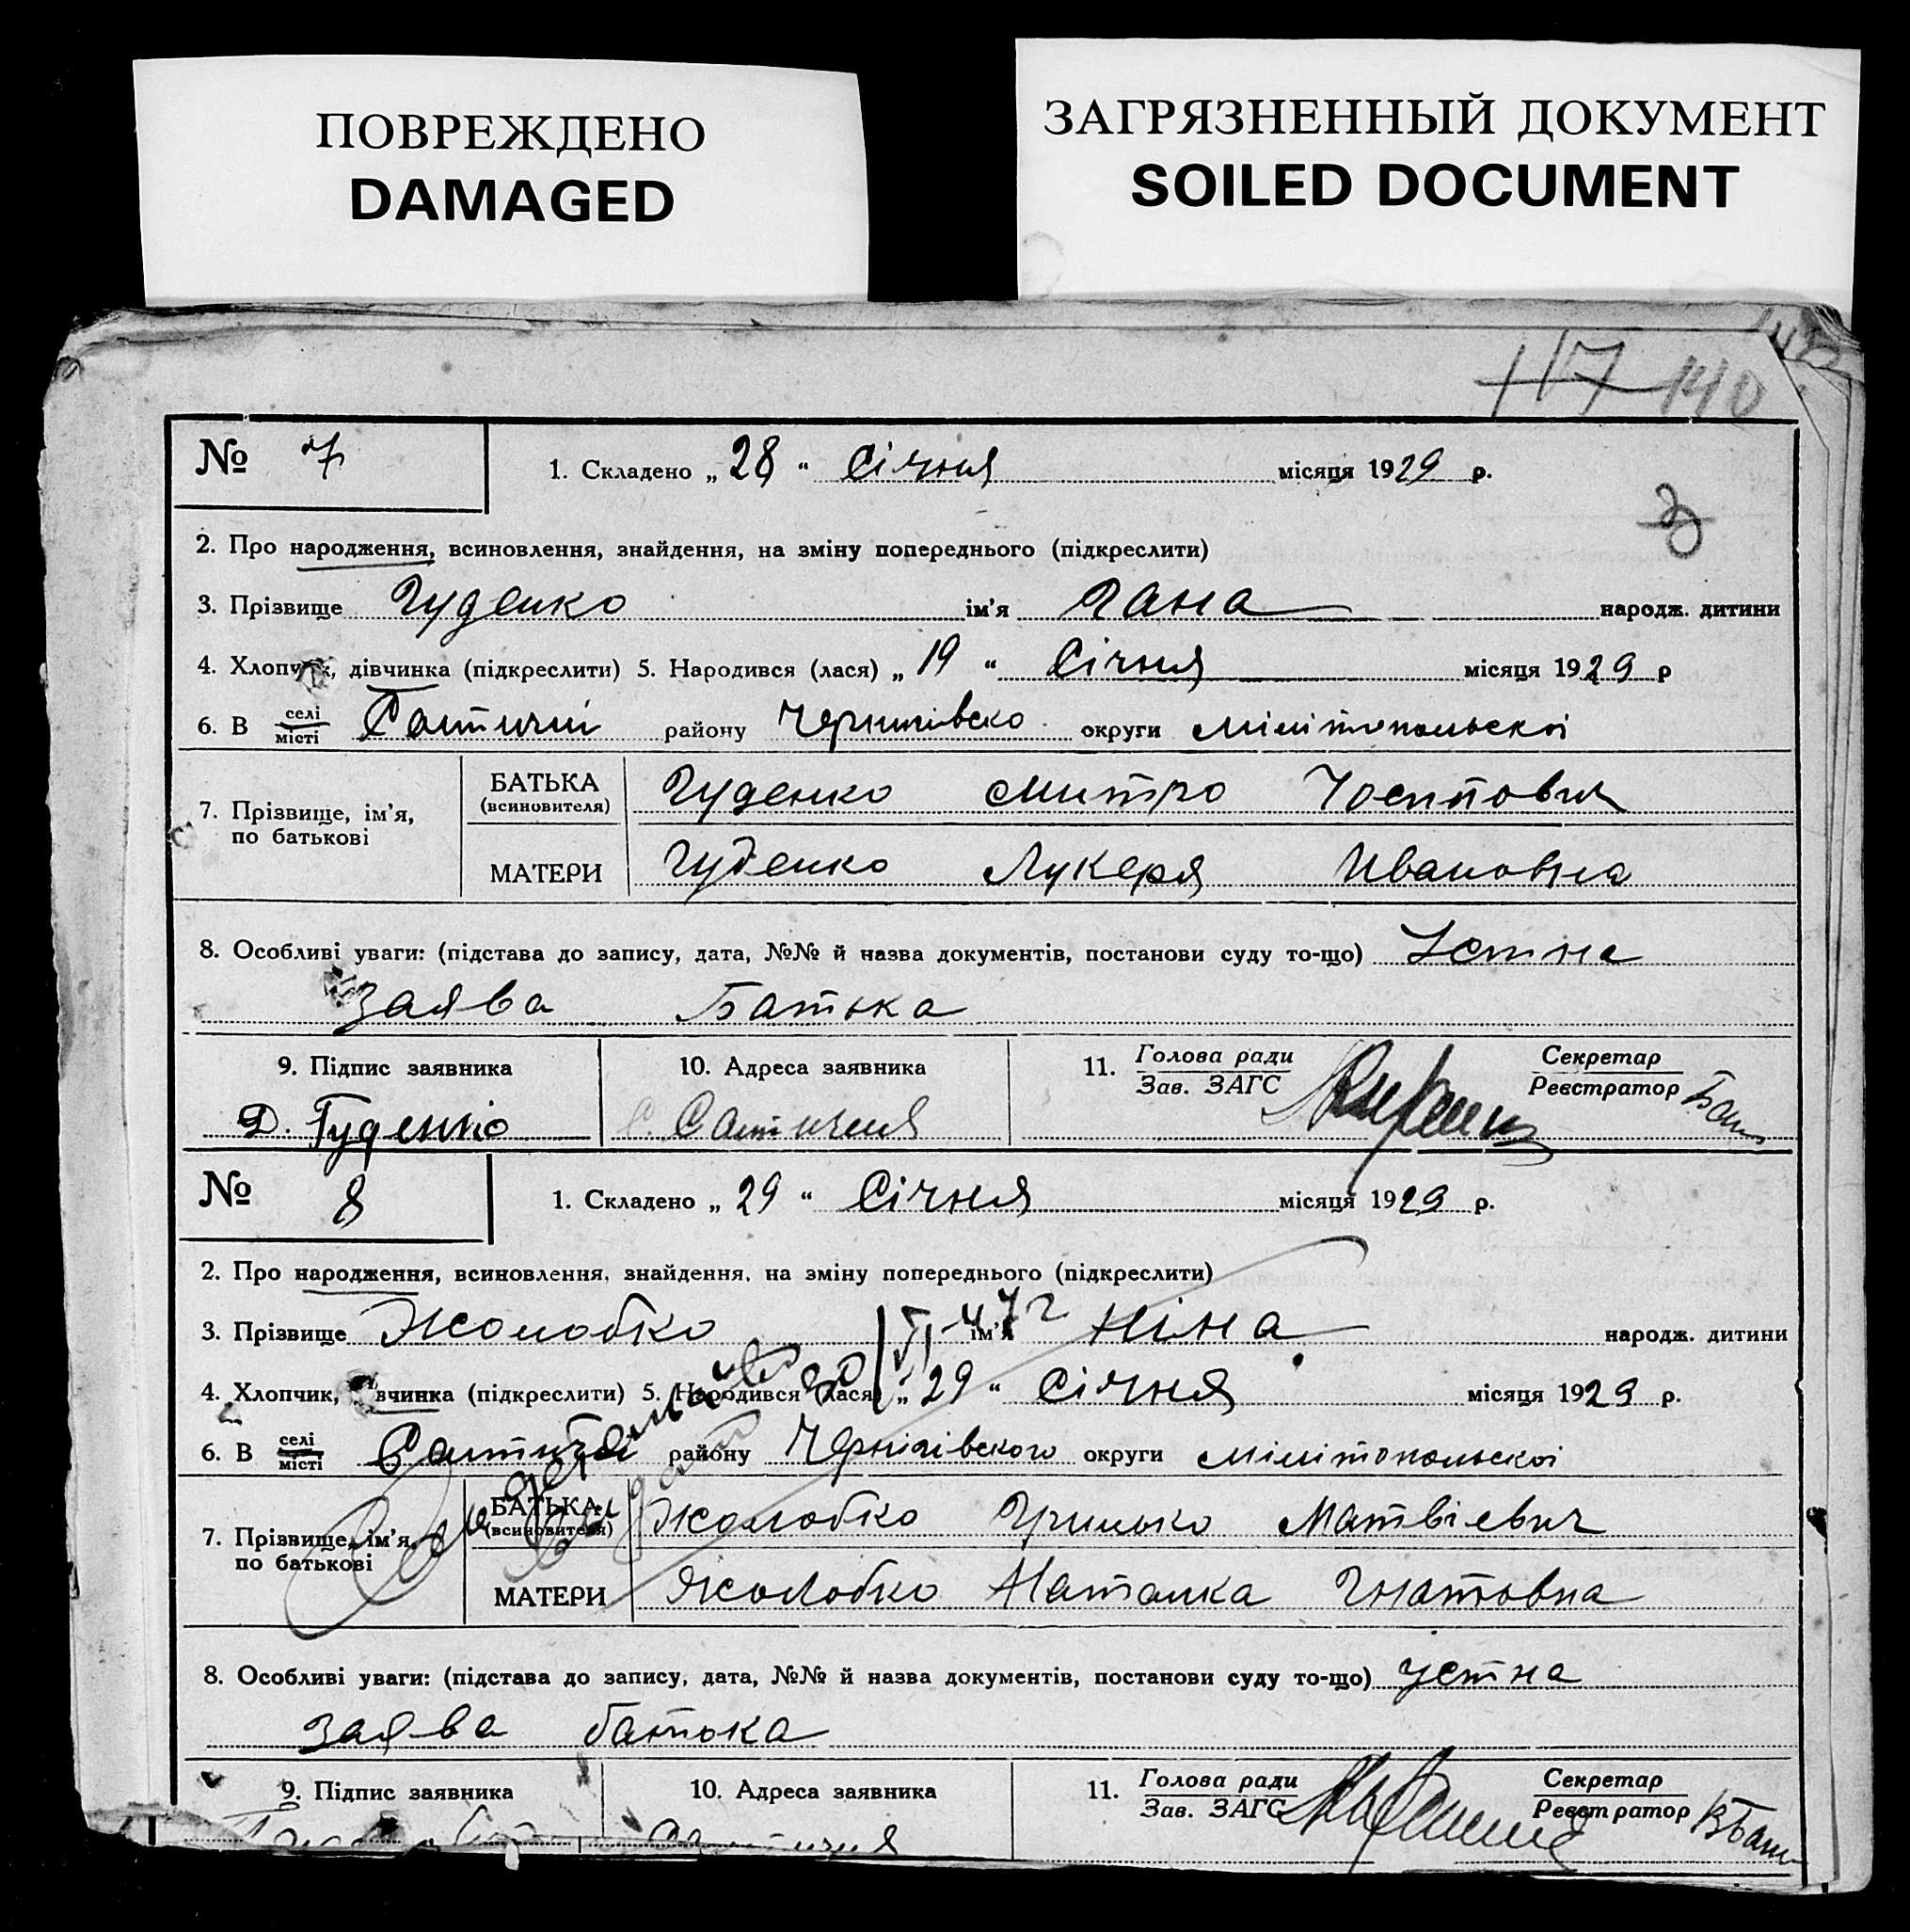 ПОВРЕЖДЕНО
DAMAGED
ЗАГРЯЗНЕННЫЙ ДОКУМЕНТ
SOILED DOCUMENT
117 140
№ 7
1. Складено „ 28 “ Січня місяця 1929 р.
2. Про народження, всиновлення, знайдення, на зміну попереднього (підкреслити)
3. Прізвище Гуденко ім'я Гана народж. дитини
4. Хлопчик, дівчинка (підкреслити) 5. Народився (лася) „ 19 “ Січня місяця 1929 р
6. В селі місті району округи Мілітопольскої
7. Прізвище, ім'я, по батькові
БАТЬКА (всиновителя) Гуденко Митро Йосипович
МАТЕРИ Гуденко Лукеря Ивановна
8. Особливі уваги: (підстава до запису, дата, №№ й назва документів, постанови суду то-що) Устна
заява Батька
9. Підпис заявника
10. Адреса заявника
11. Голова ради Зав. ЗАГС
Секретар Реєстратор
Д. Гуденко
№ 8
1. Складено „ 29 “ Січня місяця 1929 р.
2. Про народження, всиновлення, знайдення, на зміну попереднього (підкреслити)
3. Прізвище Жолобко ім'я Ніна народж. дитини
4. Хлопчик, вчинка (підкреслити) 5. Народився (лася) „ 29 “ Січня місяця 1929 р.
6. В селі місті району Чернігівского округи Мілітопольскої
7. Прізвище, ім'я, по батькові
БАТЬКА (всиновителя) Жолобко Грицько Матвієвич
МАТЕРИ Жолобко Наталка Гнатовна
8. Особливі уваги: (підстава до запису, дата, №№ й назва документів, постанови суду то-що) Устна
заява батька
9. Підпис заявника
10. Адреса заявника
11. Голова ради Зав. ЗАГС
Секретар Реєстратор